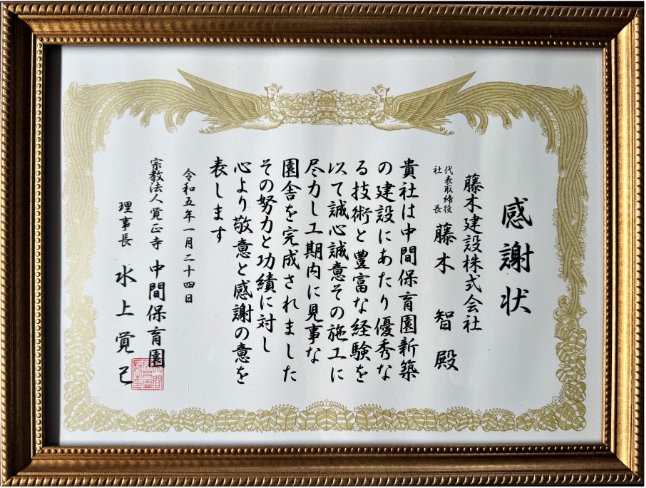 感謝状
藤木建設株式会社
代表取締役
社長
藤木 智 殿
貴社は中間保育園新築
の建設にあたり優秀な
る技術と豊富な経験を
以て誠心誠意その施工に
尽力し工期内に見事な
園舎を完成されました
その努力と功績に対し
心より敬意と感謝の意を
表します
令和五年一月二十四日
宗教法人覚正寺 中間保育園
理事長 水上覚己